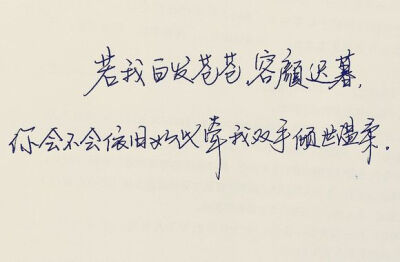 若我白发苍苍,容颜迟暮,
你会不会依旧如此牵我双手倾世温柔.